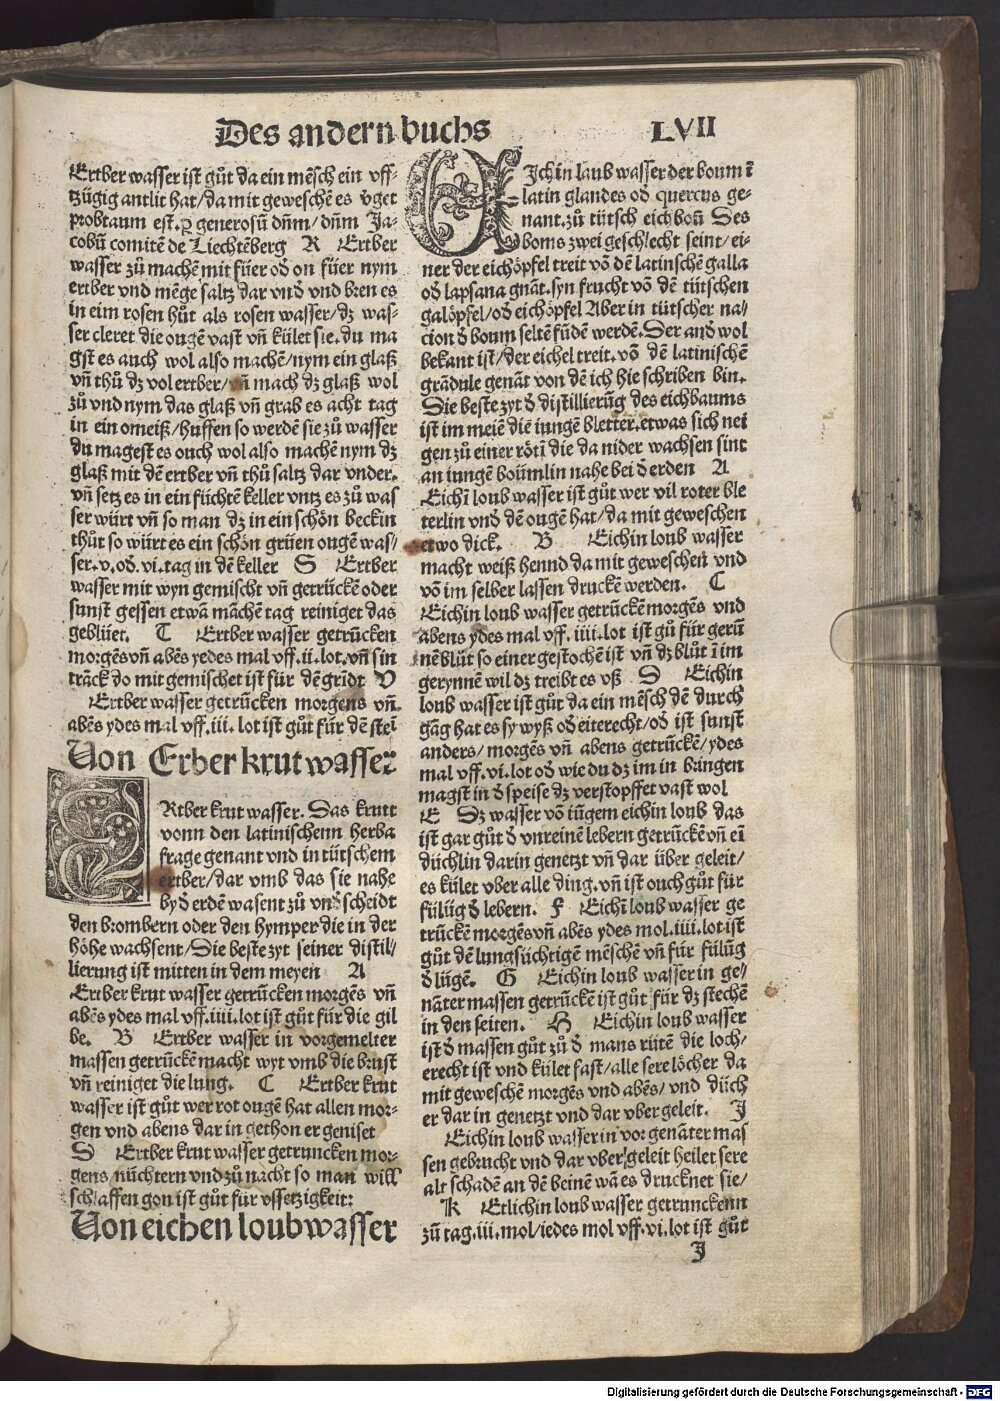 Des andern buchs
LVII
Ertber wasser ist gůt da ein mẽsch ein vff-
tzügig antlit hat/da mit geweschẽ es ṽget
probtaum est.ꝑ generosũ dñm/dñm Ja-
cobũ comitẽ de Liechtẽberg R Ertber
wasser zů machẽ mit füer oď on füer nym
ertber vnd mẽge saltz dar vnď vnd bren es
in eim rosen hůt als rosen wasser/dz was-
ser cleret die ougẽ vast vñ kület sie. du ma
gst es auch wol also machẽ/nym ein glaß
vñ thů dz vol ertber/vñ mach dz glaß wol
zů vnd nym das glaß vñ grab es acht tag
in ein omeiß/huffen so werdẽ sie zů wasser
du magest es ouch wol also machẽ nym dz
glaß mit dẽ ertber vñ thů saltz dar vnder.
vñ setz es in ein füchtẽ keller vntz es zů was
ser würt vñ so man dz in ein schön beckin
thůt so würt es ein schön grüen ougẽ was/
ser.v.od.vi.tag in dẽ keller S Ertber
wasser mit wyn gemischt vñ getrückẽ oder
sunst gessen etwã mãchẽ tag reiniget das
geblüet. T Ertber wasser getrũcken
morgẽs vñ abẽs yedes mal vff.ii.lot.vñ sin
trãck do mit gemischet ist für dẽ grĩdt V
Ertber wasser getrũcken morgens vñ
abẽs ydes mal vff.iii.lot ist gůt für dẽ steĩ
Von Erber krut wasser
ERtber krut wasser. Das krutt
vonn den latinischenn herba
frage genant vnd in tütschem
ertber/dar vmb das sie nahe
by ď erdẽ wasent zů vnďscheidt
den brombern oder den hymper die in der
höhe wachsent/Die beste zyt seiner distil/
lierung ist mitten in dem meyen A
Ertber krut wasser getrũcken morgẽs vñ
abẽs ydes mal vff.iiii.lot ist gůt für die gil
be. B Ertber wasser in vorgemelter
massen getrũckẽ macht wyt vmb die brust
vñ reiniget die lung. C Ertber krut
wasser ist gůt wer rot ougẽ hat allen mor-
gen vnd abens dar in gethon er geniset
D Ertber krut wasser getruncken mor-
gens nüchtern vnd zů nacht so man will
schlaffen gon ist gůt für vssetzigkeit:
Von eichen loub wasser
EIchin laub wasser der boum ĩ
latin glandes oď quercus ge-
nant.zů tütsch eich boũ Des
boms zwei geschlecht seint/ei-
ner der eichöpfel treit võ dẽ latinschẽ galla
oď lapsana gnãt.syn frucht võ dẽ tütschen
galöpfel/oď eichöpfel Aber in tütscher na-
cion ď boum seltẽ fũdẽ werdẽ. Der anď wol
bekant ist/der eichel treit.võ dẽ latinischẽ
grãdule genãt von dẽ ich hie schriben bin.
Die beste zyt ď distillierũg des eichbaums
ist im meiẽ diẽ iungẽ bletter.etwas sich nei
gen zů einer rötĩ die da nider wachsen sint
an iungẽ boümlin nahe bei ď erden A
Eichĩ loub wasser ist gůt wer vil roter ble
terlin vnď dẽ ougẽ hat/da mit geweschen
etwo dick. B Eichin loub wasser
macht weiß hennd da mit geweschen vnd
võ im selber lassen druckẽ werden. C
Eichin loub wasser getrückẽ morgẽs vnd
abens ydes mal vff.iiii.lot ist gů für gerũ
nẽ blůt so einer gestochẽ ist vñ dz blůt ĩ im
gerynnẽ wil dz treibt es vß D Eichin
loub wasser ist gůt da ein mẽsch dẽ durch
gãg hat es sy wyß oď eiterecht/oď ist sunst
anders/morgẽs vñ abens getrũckẽ/ydes
mal vff.vi.lot oď wie du dz im in bringen
magst in ď speise dz verstopffet vast wol
E Dz wasser võ iũgem eichin loub das
ist gar gůt ď vnreinẽ lebern getrückẽ vñ eĩ
düchlin darin genetzt vñ dar über geleit/
es kület vber alle ding.vñ ist ouch gůt für
fülüg ď lebern. F Eichĩ loub wasser ge
trũckẽ morgẽs vñ abẽs ydes mol.iiii.lot ist
gůt dẽ lungsüchtigẽ mẽschẽ vñ für fülũg
ď lũgẽ. G Eichin loub wasser in ge/
nãter massen getrũckẽ ist gůt für dz stechẽ
in den seiten. H Eichin loub wasser
ist ď massen gůt zů ď mans rütẽ die loch/
erecht ist vnd kület fast/alle sere löcher da
mit geweschẽ morgẽs vnd abẽs/vnd düch
er dar in genetzt vnd dar vber geleit. J
Eichin loub wasser in vor genãter mas
sen gebrucht vnd dar vber geleit heilet sere
alt schadẽ an dẽ beinẽ wã es drucknet sie/
K Etlichin loub wasser getrunckenn
zů tag.iii.mol/iedes mol vff.vi.lot ist gůt
J
Digitalisierung gefördert durch die Deutsche Forschungsgemeinschaft - DFG